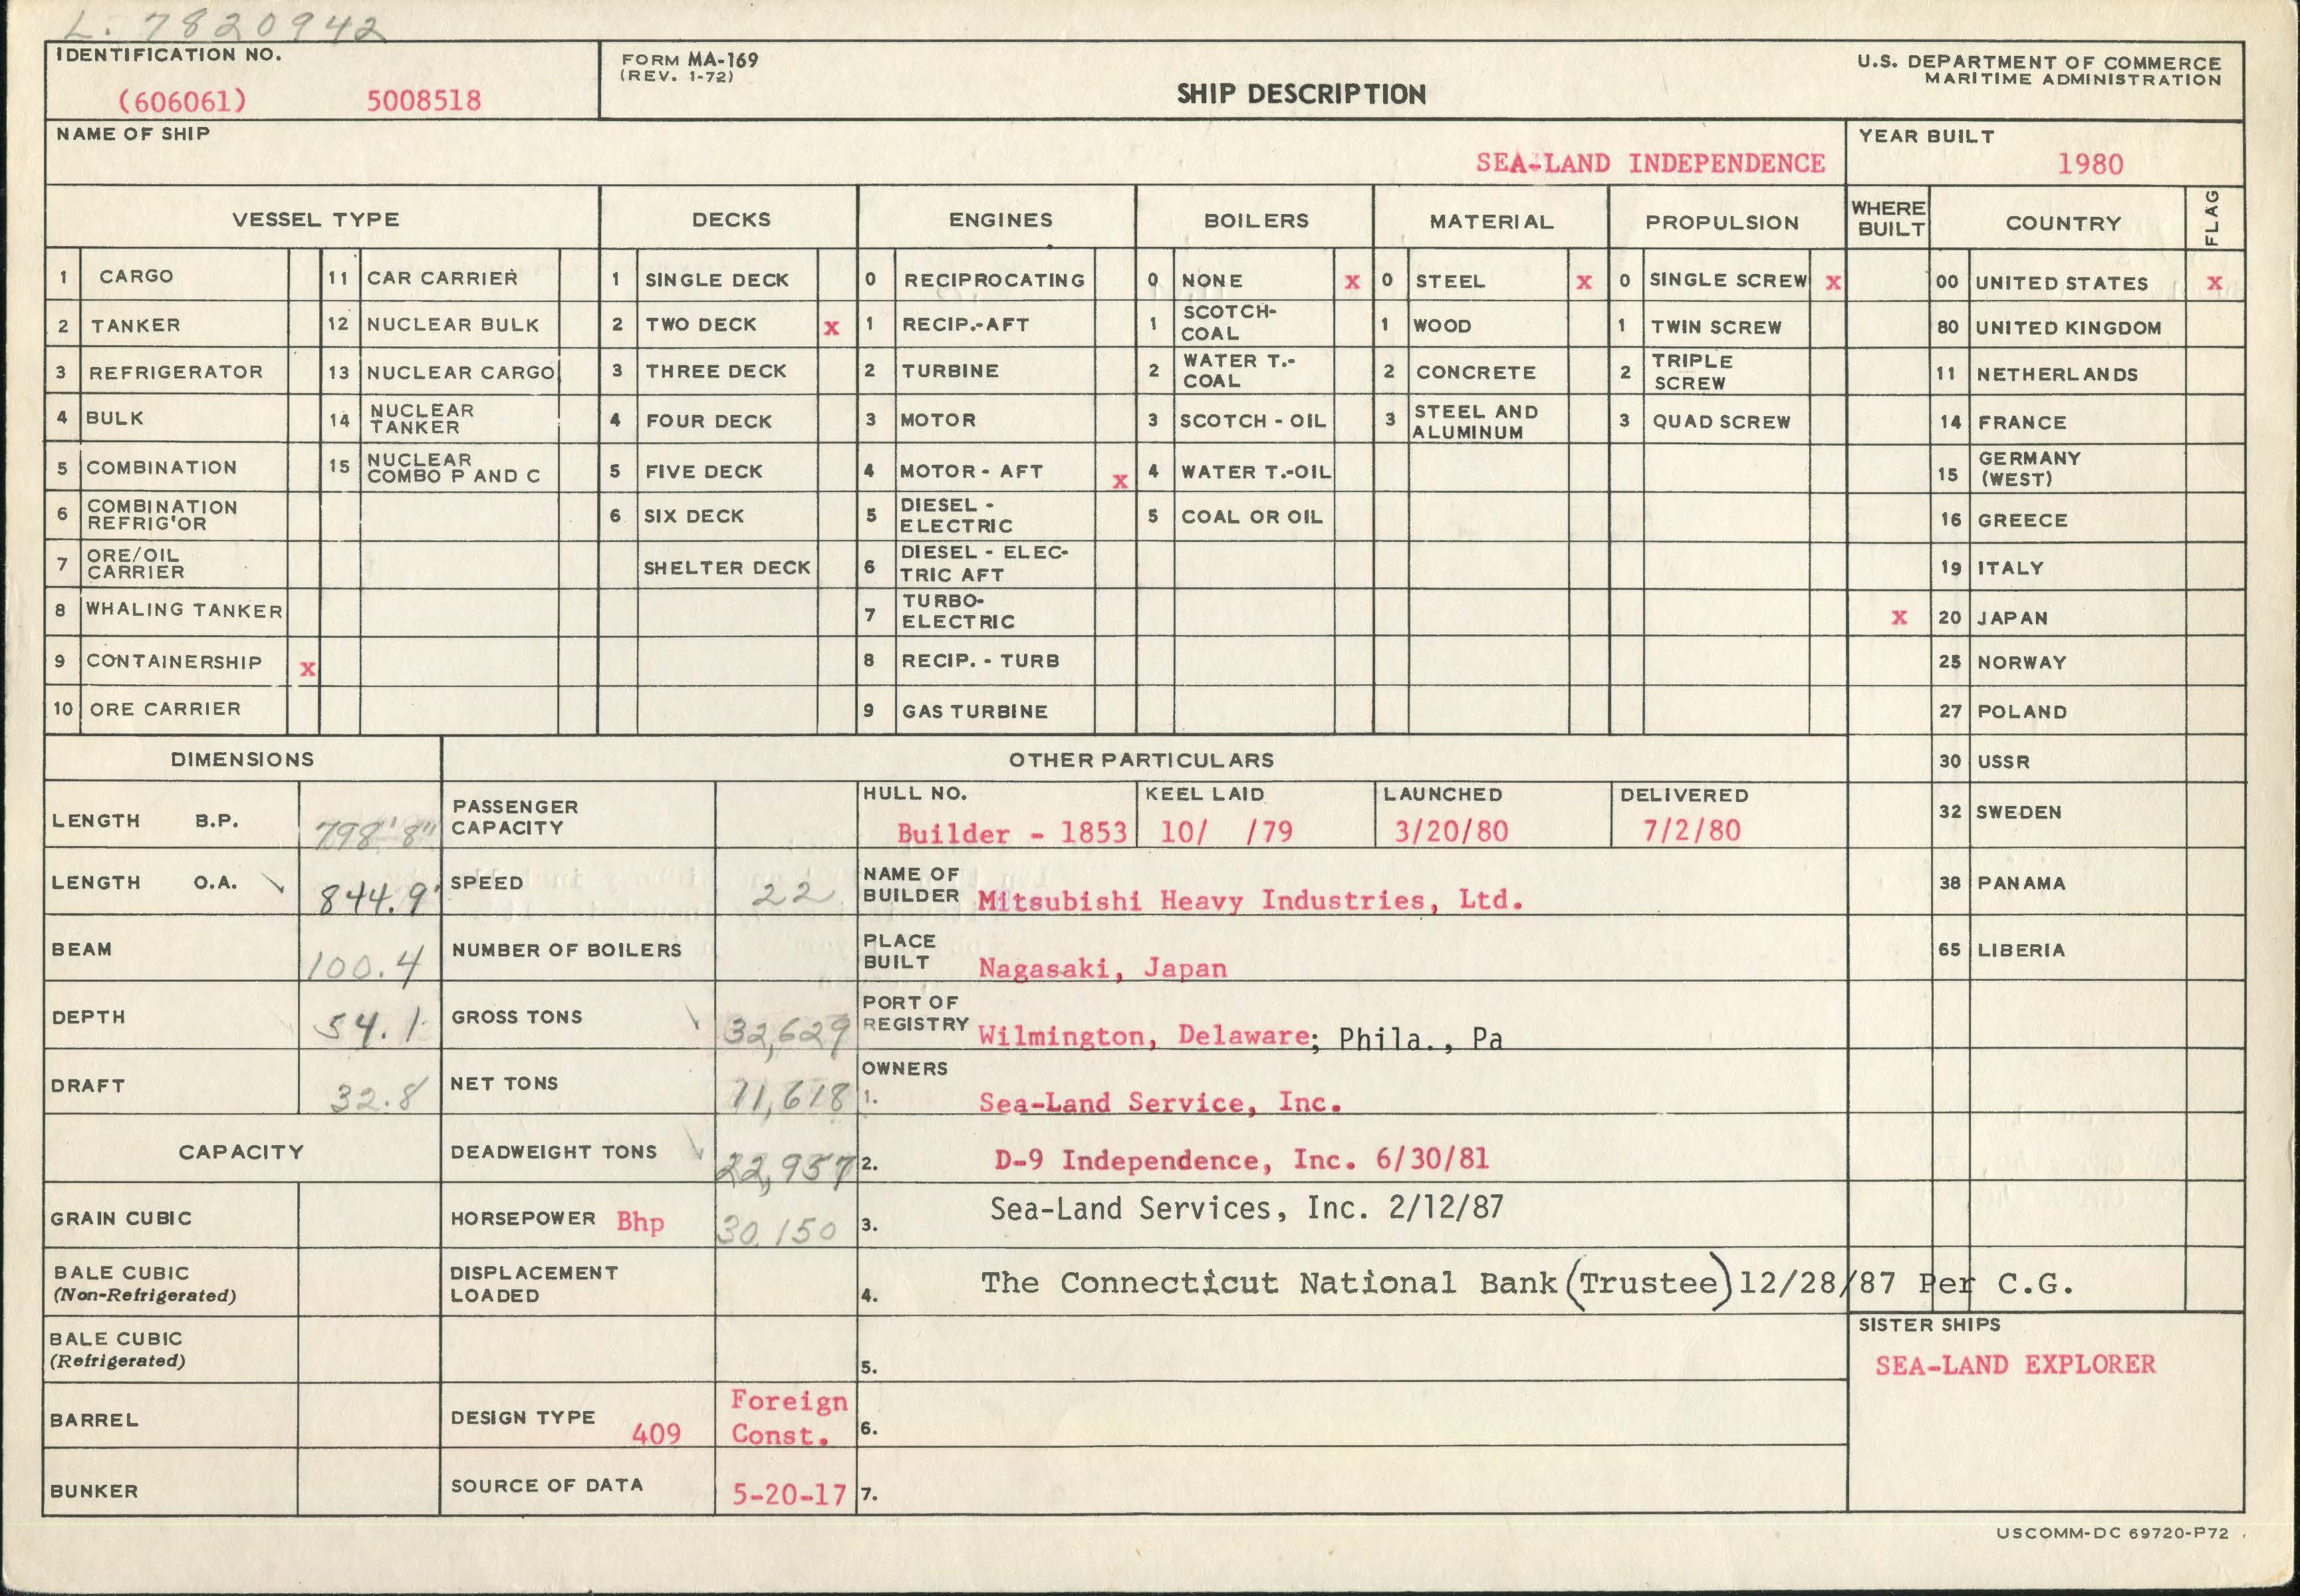 L. 7820942
IDENTIFICATION NO.
(606061) 5008518
FORM MA-169
(REV. 1-72)
SHIP DESCRIPTION
U.S. DEPARTMENT OF COMMERCE
MARITIME ADMINISTRATION
NAME OF SHIP
SEA-LAND INDEPENDENCE
YEAR BUILT
1980
VESSEL TYPE DECKS ENGINES BOILERS MATERIAL PROPULSION WHERE BUILT COUNTRY FLAG
1 CARGO 11 CAR CARRIER 1 SINGLE DECK 0 RECIPROCATING 0 NONE x 0 STEEL x 0 SINGLE SCREW x 00 UNITED STATES x
2 TANKER 12 NUCLEAR BULK 2 TWO DECK x 1 RECIP.-AFT 1 SCOTCH-COAL 1 WOOD 1 TWIN SCREW 80 UNITED KINGDOM
3 REFRIGERATOR 13 NUCLEAR CARGO 3 THREE DECK 2 TURBINE 2 WATER T.-COAL 2 CONCRETE 2 TRIPLE SCREW 11 NETHERLANDS
4 BULK 14 NUCLEAR TANKER 4 FOUR DECK 3 MOTOR 3 SCOTCH - OIL 3 STEEL AND ALUMINUM 3 QUAD SCREW 14 FRANCE
5 COMBINATION 15 NUCLEAR COMBO P AND C 5 FIVE DECK 4 MOTOR - AFT x 4 WATER T.-OIL 15 GERMANY (WEST)
6 COMBINATION REFRIG'OR 6 SIX DECK 5 DIESEL - ELECTRIC 5 COAL OR OIL 16 GREECE
7 ORE/OIL CARRIER SHELTER DECK 6 DIESEL - ELEC-TRIC AFT 19 ITALY
8 WHALING TANKER 7 TURBO-ELECTRIC x 20 JAPAN
9 CONTAINERSHIP x 8 RECIP. - TURB 25 NORWAY
10 ORE CARRIER 9 GAS TURBINE 27 POLAND
DIMENSIONS OTHER PARTICULARS 30 USSR
LENGTH B.P. 798' 8" PASSENGER CAPACITY HULL NO. Builder - 1853 KEEL LAID 10/ /79 LAUNCHED 3/20/80 DELIVERED 7/2/80 32 SWEDEN
LENGTH O.A. 844.9' SPEED 22 NAME OF BUILDER Mitsubishi Heavy Industries, Ltd. 38 PANAMA
BEAM 100.4 NUMBER OF BOILERS PLACE BUILT Nagasaki, Japan 65 LIBERIA
DEPTH 54.1 GROSS TONS 32,629 PORT OF REGISTRY Wilmington, Delaware; Phila., Pa
DRAFT 32.8 NET TONS OWNERS 1. Sea-Land Service, Inc.
CAPACITY DEADWEIGHT TONS 22,957 2. D-9 Independence, Inc. 6/30/81
GRAIN CUBIC HORSEPOWER Bhp 30,150 3. Sea-Land Services, Inc. 2/12/87
BALE CUBIC (Non-Refrigerated) DISPLACEMENT LOADED 4. The Connecticut National Bank (Trustee) 12/28/87 Per C.G.
BALE CUBIC (Refrigerated) 5. SISTER SHIPS
SEA-LAND EXPLORER
BARREL DESIGN TYPE 409 Foreign Const. 6.
BUNKER SOURCE OF DATA 5-20-17 7.
USCOMM-DC 69720-P72